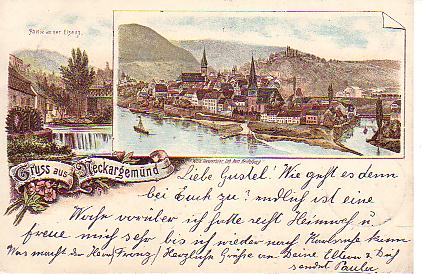 Partie an der Elsenz.
Gruss aus Neckargemünd
Liebe Gustel! Wie geht es denn
bei Euch zu? endlich ist eine
Woche vorüber ich hatte recht Heimweh u
freue mich sehr bis ich wieder nach Karlsruhe komm
Was macht der Herr Franz? Herzliche Grüße an Deine Eltern u Dich
sendet Paula